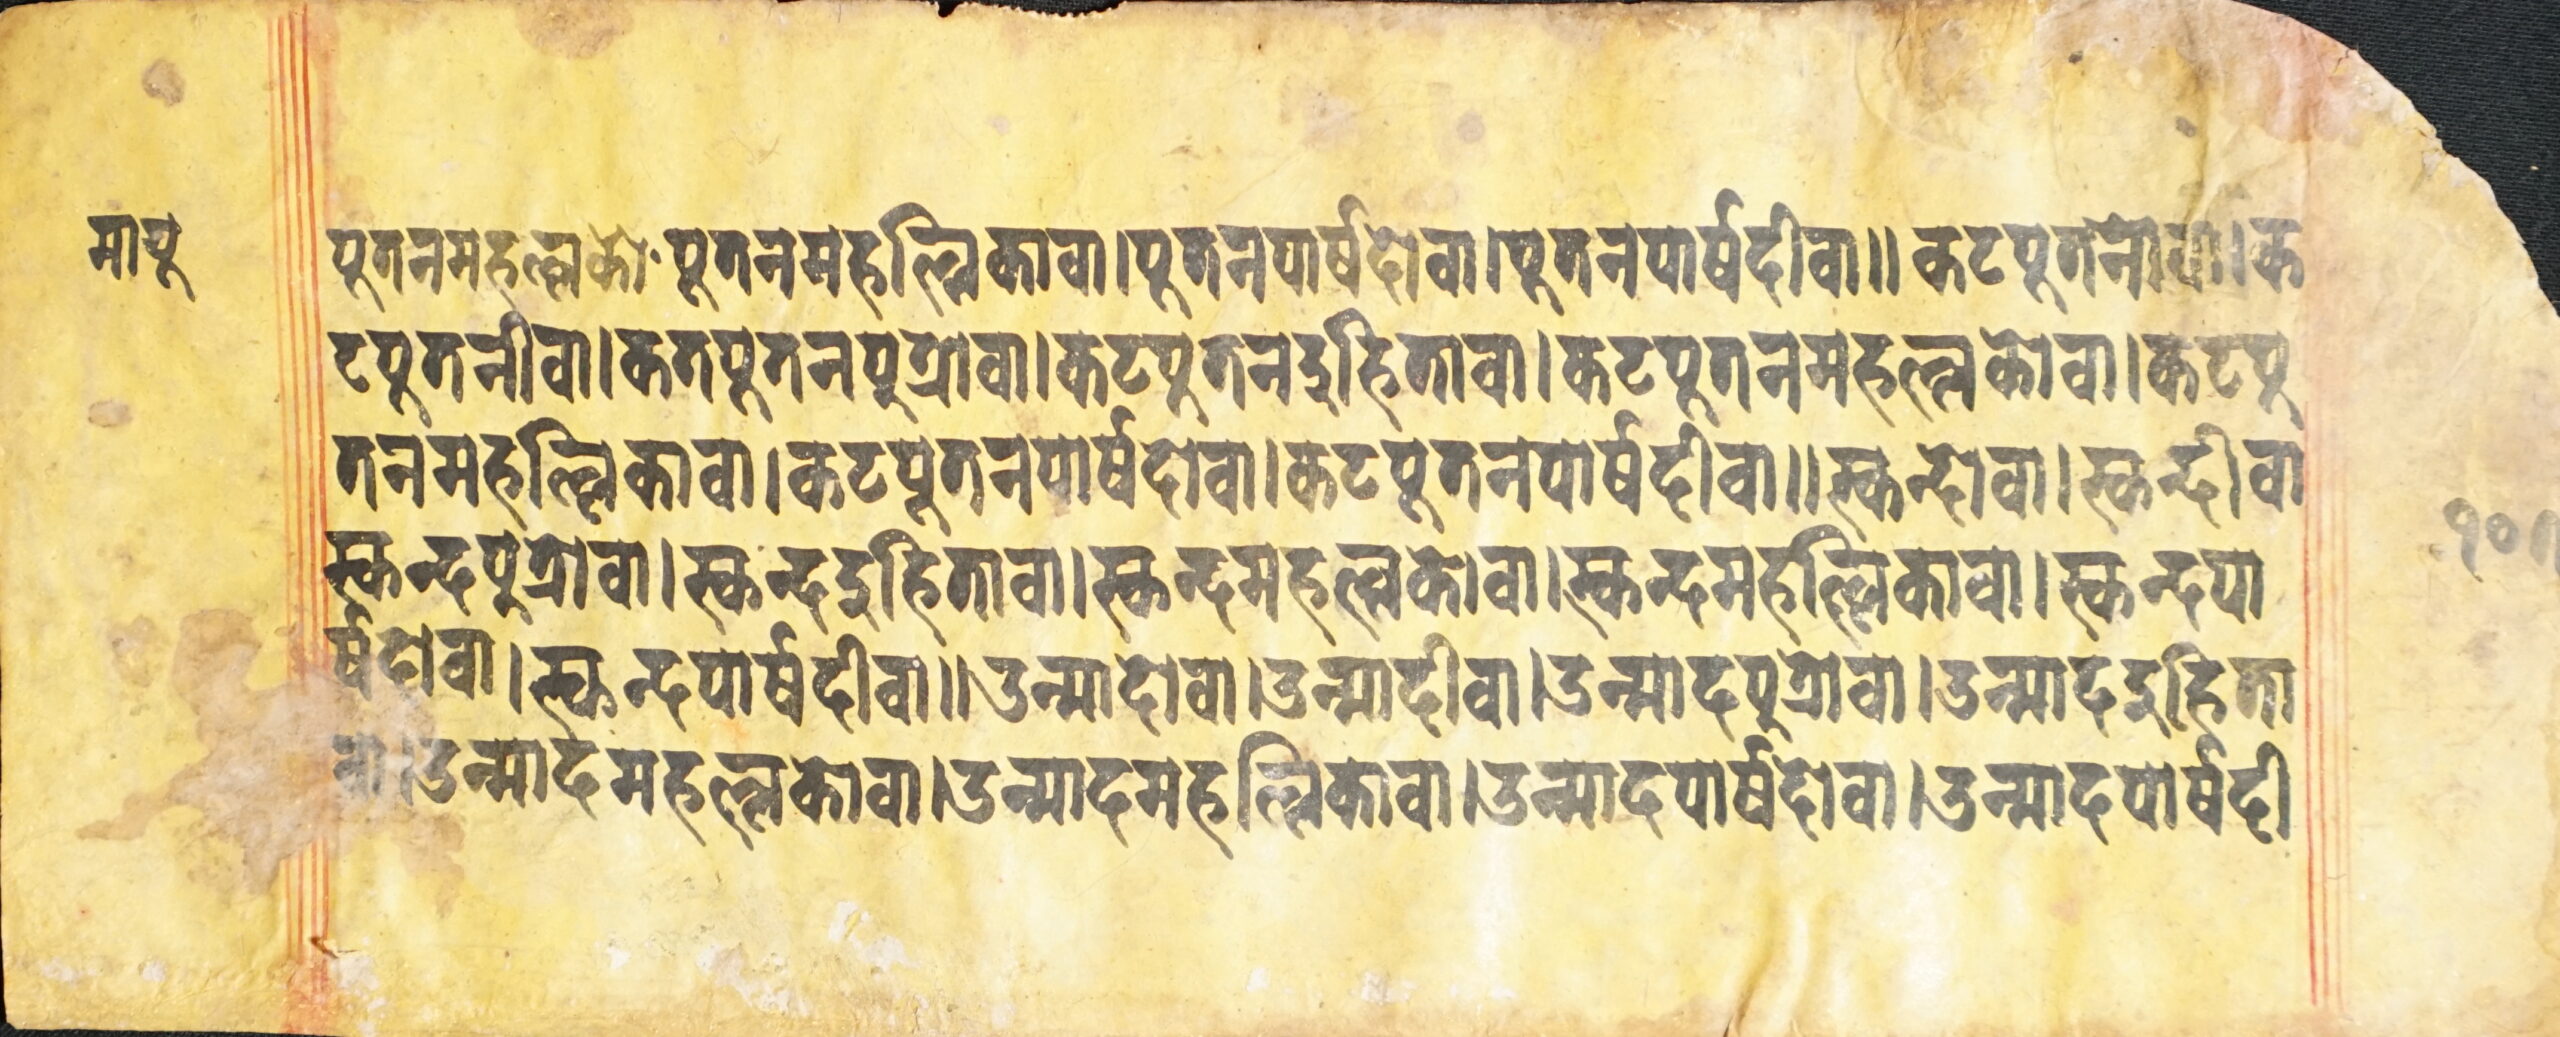 मायू
पूतनमहल्लको पूतनमहल्लिकावा।पूतनपार्षदोवा।पूतनपार्षदीवा॥कटपूतनोवा।क
टपूतनीवा।कतपूतनपुत्रोवा।कटपूतनदुहितावा।कटपूतनमहल्लकोवा।कटपू
तनमहल्लिकावा।कटपूतनपार्षदोवा।कटपूतनपार्षदीवा॥स्कन्दोवा।स्कन्दीवा
स्कन्दपुत्रोवा।स्कन्ददुहितावा।स्कन्दमहल्लकोवा।स्कन्दमहल्लिकावा।स्कन्दपा
र्षदोवा।स्कन्दपार्षदीवा॥उन्मादोवा।उन्मादीवा।उन्मादपुत्रोवा।उन्माददुहिता
वा।उन्मादमहल्लकोवा।उन्मादमहल्लिकावा।उन्मादपार्षदोवा।उन्मादपार्षदी